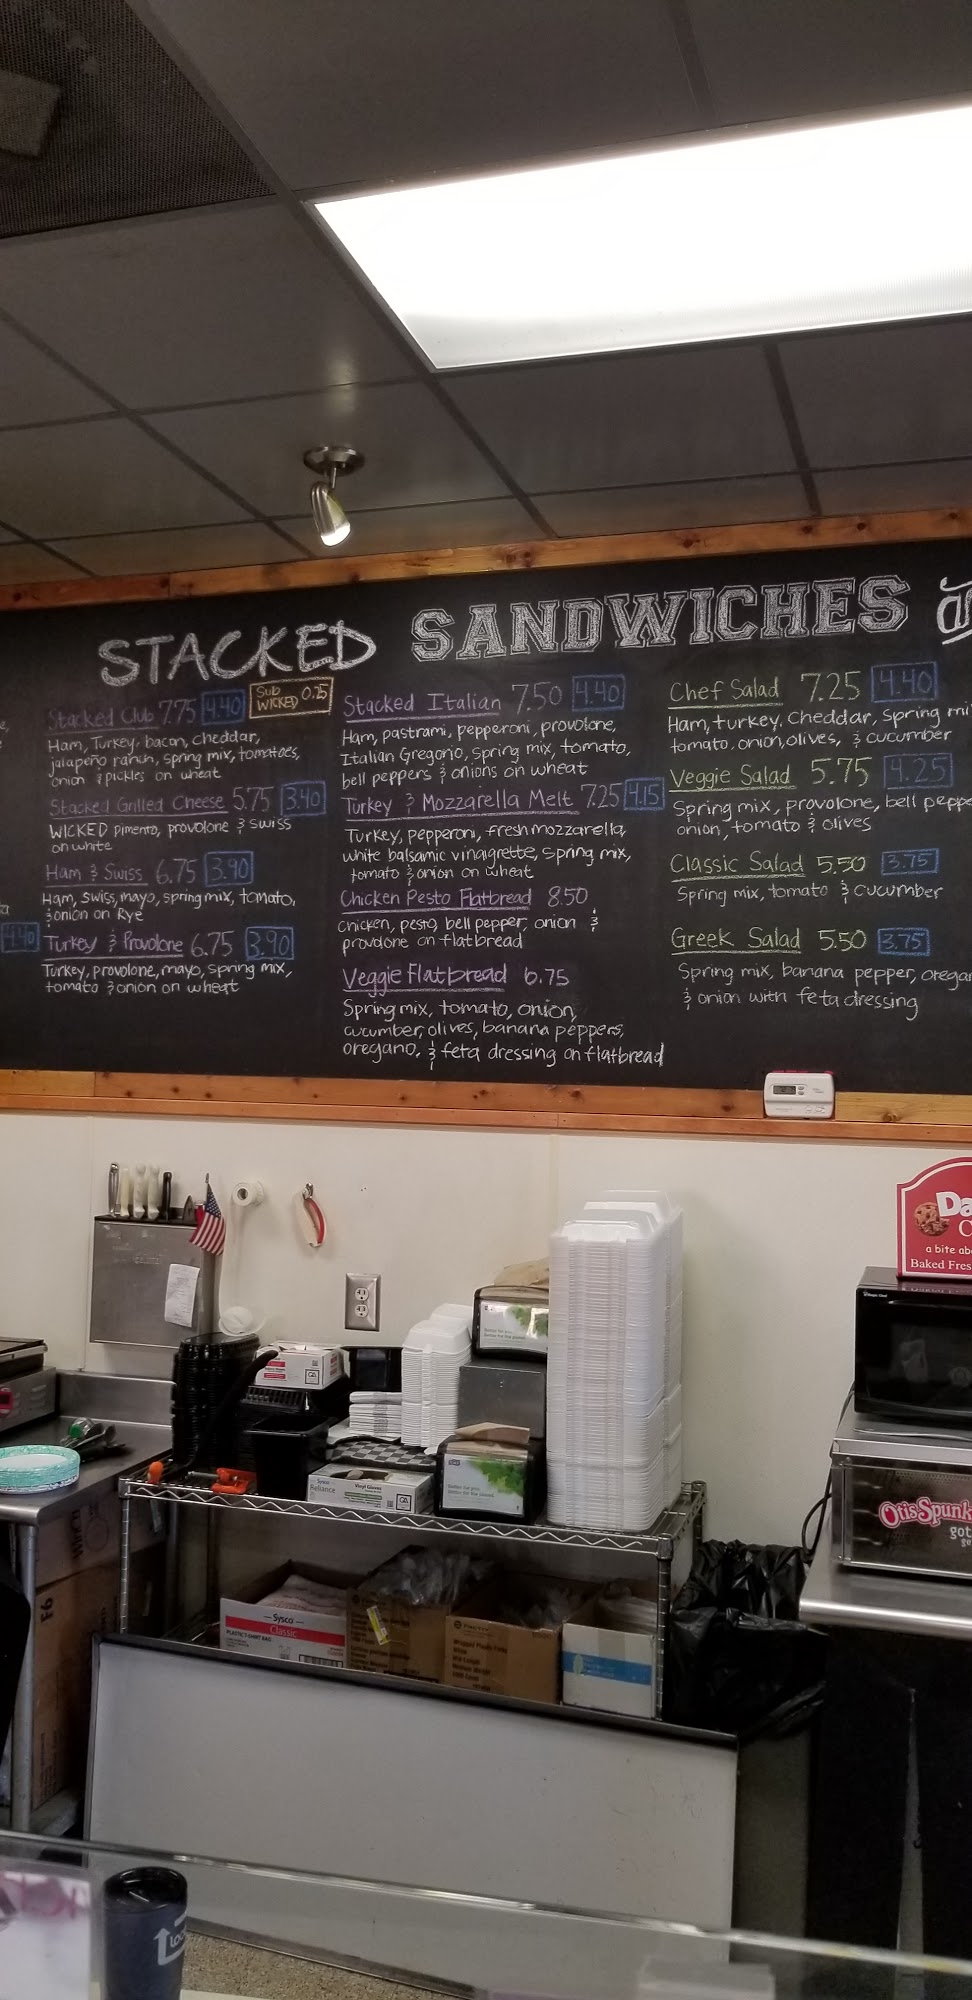 STACKED SANDWICHES
Stacked Club 7.75 4.40
Sub WICKED 0.25
Ham, Turkey, bacon, cheddar,
jalapeño ranch, spring mix, tomatoes,
onion & pickles on wheat
Stacked Grilled Cheese 5.75 3.40
WICKED pimento, provolone & swiss
on white
Ham & Swiss 6.75 3.90
Ham, Swiss, mayo, spring mix, tomato,
& onion on Rye
4.40
Turkey & Provolone 6.75 3.90
Turkey, provolone, mayo, spring mix,
tomato & onion on wheat
Stacked Italian 7.50 4.40
Ham, pastrami, pepperoni, provolone,
Italian Gregorio, spring mix, tomato,
bell peppers & onions on wheat
Turkey & Mozzarella Melt 7.25 4.15
Turkey, pepperoni, fresh mozzarella,
white balsamic vinaigrette, spring mix,
tomato & onion on wheat
Chicken Pesto Flatbread 8.50
chicken, pesto, bell pepper, onion &
provolone on flatbread
Veggie Flatbread 6.75
Spring mix, tomato, onion,
cucumber, olives, banana peppers,
oregano, & feta dressing on flatbread
Chef Salad 7.25 4.40
Ham, turkey, Cheddar, spring mi
tomato, onion, olives, & cucumber
Veggie Salad 5.75 4.25
Spring mix, provolone, bell peppe
onion, tomato & olives
Classic Salad 5.50 3.75
Spring mix, tomato & cucumber
Greek Salad 5.50 3.75
Spring mix, banana pepper, oregan
& onion with feta dressing
Da
C
a bite ab
Baked Fres
OtisSpunk
got
Sysco
Reliance
Vinyl Gloves
Sysco
Classic
PLASTIC T-SHIRT BAG
F6
LOC